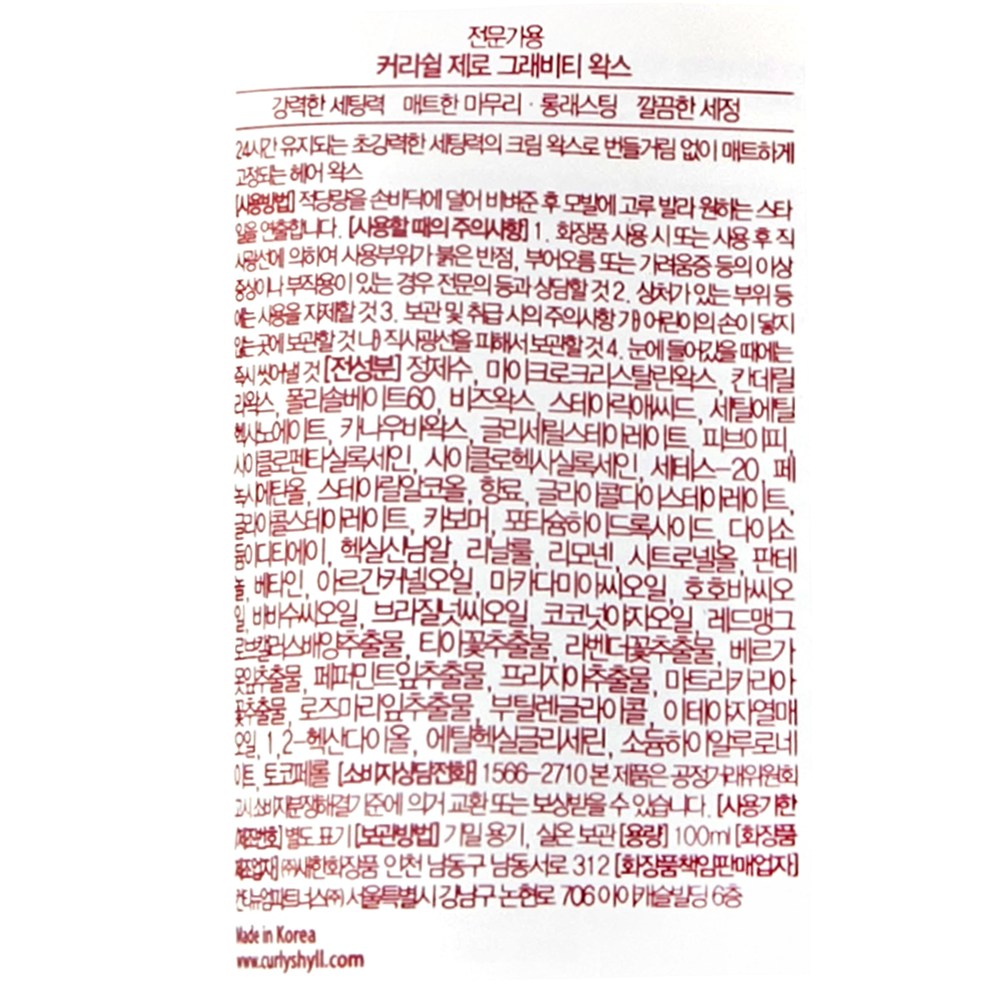 전문가용
커리쉴 제로 그래비티 왁스
강력한 세팅력 매트한 마무리 · 롱래스팅 깔끔한 세정
24시간 유지되는 초강력한 세팅력의 크림 왁스로 번들거림 없이 매트하게
고정되는 헤어 왁스
[사용방법] 적당량을 손바닥에 덜어 비벼준 후 모발에 고루 발라 원하는 스타
일을 연출합니다. [사용할 때의 주의사항] 1. 화장품 사용 시 또는 사용 후 직
사광선에 의하여 사용부위가 붉은 반점, 부어오름 또는 가려움증 등의 이상
증상이나 부작용이 있는 경우 전문의 등과 상담할 것 2. 상처가 있는 부위 등
에는 사용을 자제할 것 3. 보관 및 취급 시의 주의사항 가) 어린이의 손이 닿지
않는 곳에 보관할 것 나) 직사광선을 피해서 보관할 것 4. 눈에 들어갔을 때에는
즉시 씻어낼 것 [전성분] 정제수, 마이크로크리스탈린왁스, 칸데릴
라왁스, 폴리솔베이트60, 비즈왁스, 스테아릭애씨드, 세틸에틸
헥사노에이트, 카나우바왁스, 글리세릴스테아레이트, 피브이피,
사이클로펜타실록세인, 사이클로헥사실록세인, 세테스-20 페
녹시에탄올, 스테아릴알코올, 향료, 글라이콜다이스테아레이트,
글라이콜스테아레이트, 카보머, 포타슘하이드록사이드, 다이소
듐이디티에이, 헥실신남알, 리날룰, 리모넨, 시트로넬올, 판테
놀, 베타인, 아르간커넬오일, 마카다미아씨오일, 호호바씨오
일, 바바수씨오일, 브라질넛씨오일, 코코넛야자오일, 레드맹그
로브캘러스배양추출물, 티아꽃추출물, 라벤더꽃추출물, 베르가
못잎추출물, 페퍼민트잎추출물, 프리지아추출물, 마트리카리아
꽃추출물, 로즈마리잎추출물, 부틸렌글라이콜, 이테야자열매
오일, 1,2-헥산다이올, 에틸헥실글리세린, 소듐하이알루로네
이트, 토코페롤 [소비자상담전화] 1566-2710 본 제품은 공정거래위원회
고시 소비자분쟁해결기준에 의거 교환 또는 보상받을 수 있습니다. [사용기한
/제조번호] 별도 표기 [보관방법] 기밀 용기, 실온 보관 [용량] 100ml [화장품
제조업자] ㈜새한화장품 인천 남동구 남동서로 312 [화장품책임판매업자]
컨티뉴엄파트너스㈜ 서울특별시 강남구 논현로 706 아이캐슬빌딩 6층
Made in Korea
www.curlyshyll.com